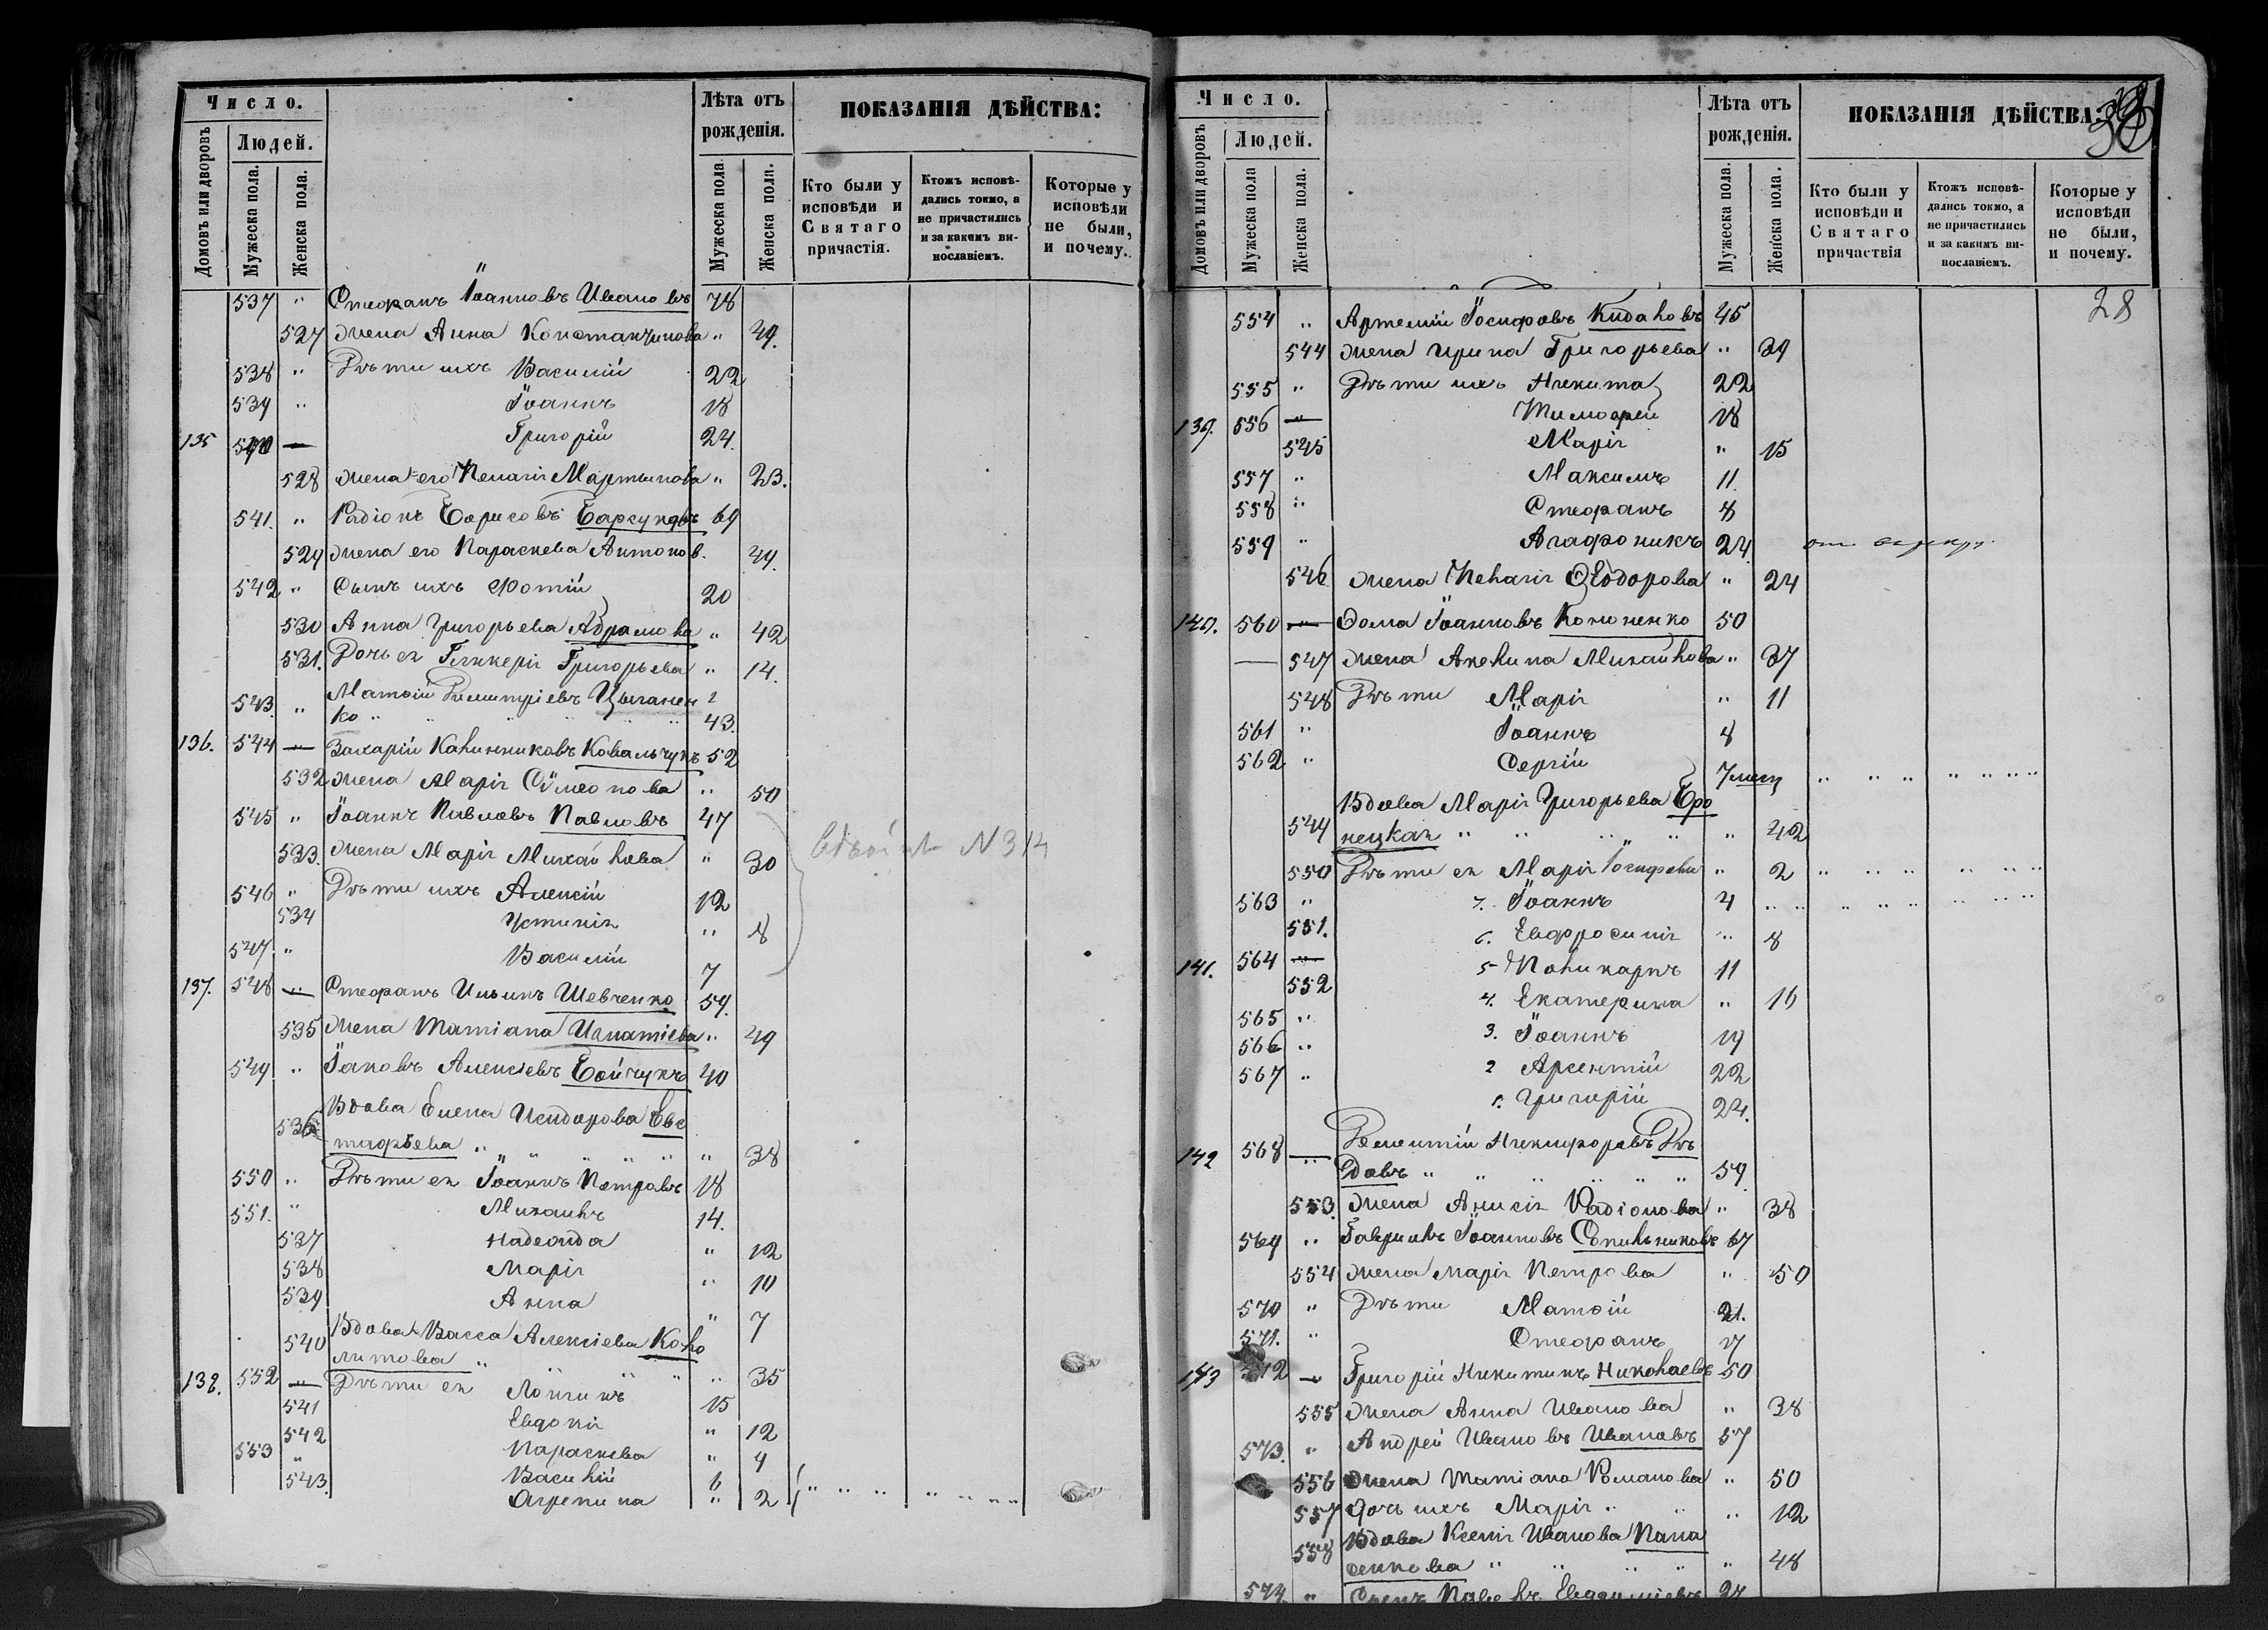 Число.
Людей.
Домовъ или дворовъ
Мужеска пола.
Женска пола.
Лѣта отъ рожденія.
Мужеска пола
Женска пола.
ПОКАЗАНІЯ ДѢЙСТВА:
Кто были у исповѣди и Святаго причастія.
Ктожъ исповѣдались токмо, а не причастились и за какимъ винославіемъ.
Которые у исповѣди не были, и почему.
537 " Стефанъ Іоанновъ Ивановъ 78
527 жена Анна Константинова " 49.
538 " Дѣти ихъ Василій 22
539 " Іоаннъ 18
135 540 — Григорій 24.
528 жена его Пелагія Мартынова " 23.
541. " Радіонъ Борисовъ Барсуковъ 69
529 жена его Параскева Антонов. 49.
542 " Сынъ ихъ Фотій 20
530 Анна Григорьева Абрамова " 42
531. Дочь ея Гликерія Григорьева " 14.
543. " Матѳій Димитріевъ Цыганен
ко " " " " " " 43.
136. 544 — Захарій Калинниковъ Ковальчукъ 52
532 жена Марія Сѵмеонова " 50
545 " Іоаннъ Павловъ Павловъ 47
533. жена Марія Михайлова " 30
546 " Дѣти ихъ Алексій 12
534 Устинія " 8
547. " Василій 7
137. 548 — Стефанъ Ильинъ Шевченко 59.
535 жена Татіана Игнатіева " 49
549 " Іаковъ Алексіевъ Бойчукъ 40
536 Вдова Елена Исидорова Евс
тафьева " " " " " " " 38
550 " Дѣти ея Іоаннъ Петровъ 18
551. " Михаилъ 14.
537 Надежда " 12
538 Марія " 10
539 Анна " 7
540 Вдова Васса Алексіева Коло
митова " " " " 35
138. 552 — Дѣти ея Лонгинъ 15
541 Евдокія " 12
542 Параскева " 9
553 " Василій 6
543. Агрепина " 2 " " " " " " "
Число.
Людей.
Домовъ или дворовъ
Мужеска пола
Женска пола.
Лѣта отъ рожденія.
Мужеска пола.
Женска пола.
ПОКАЗАНІЯ ДѢЙСТВА:
Кто были у исповѣди и Святаго причаствія
Ктожъ исповѣдались токмо, а не причастились и за какимъ винославіемъ.
Которые у исповѣди не были, и почему.
28
554 " Артемій Іосифовъ Кидаловъ 45
544 жена Ирина Григорьева " 39
555 " Дѣти ихъ Никита 22
139. 556 — Тимофей 18
545 Марія " 15
557 " Максимъ 11.
558 " Стефанъ 8
559 " Агафоникъ 24
546 жена Пелагія Ѳеодорова " 24
140. 560 — Ѳома Іоанновъ Кононенко 50
— 547 жена Акелина Михайлова " 37
548 Дѣти Марія " 11
561 " Іоаннъ 8
562 " Сергій 7 мѣсц " " " " " " "
Вдова Марія Григорьева Еро
549 нецкая " " " " " 42
550 Дѣти ея Марія Іосифова " 2 " " " " " "
563 " 7. Іоаннъ 4 " " " " " " " "
551. 6. Евфросинія " 8
141. 564 — 5 Поликарпъ 11
552 4. Екатерина " 16
565 " 3. Іоаннъ 19
566 " 2 Арсентій 22
567 " 1. Григорій 24.
142 568 — Дементій Никифоровъ Дѣ
довъ " " " " " " 59.
553. жена Анисія Радіонова " 38
569 " Гавріилъ Іоанновъ Сопильниковъ 67
554 жена Марія Петрова " 50
570 " Дѣти Матѳій 21.
571. " Стефанъ 17
143 572 — Григорій Никитинъ Николаевъ 50
555 жена Анна Иванова " 38
573. " Андрей Ивановъ Ивановъ 57
556 жена Татіана Романова " 50
557 дочь ихъ Марія " " " 12
558 Вдова Ксенія Иванова Пана
сенкова " " " " " 48
574 " Сынъ Павелъ Евдокимовъ 24